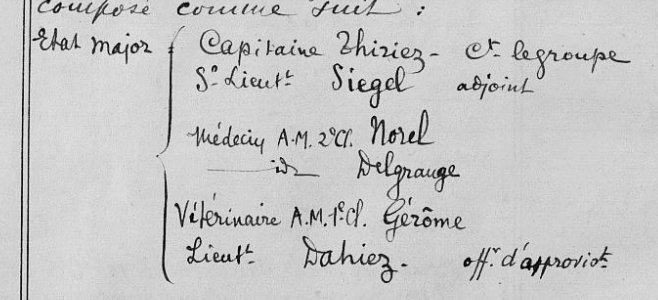 composé comme suit :
Etat major Capitaine Thiriez - Ct legroupe
Ss Lieutt Siegel adjoint
Médecin A.M. 2e Cl. Norel
id Delgrange
Vétérinaire A.M. 1e Cl. Gérôme
Lieutt Dahiez. offr. d'approviott